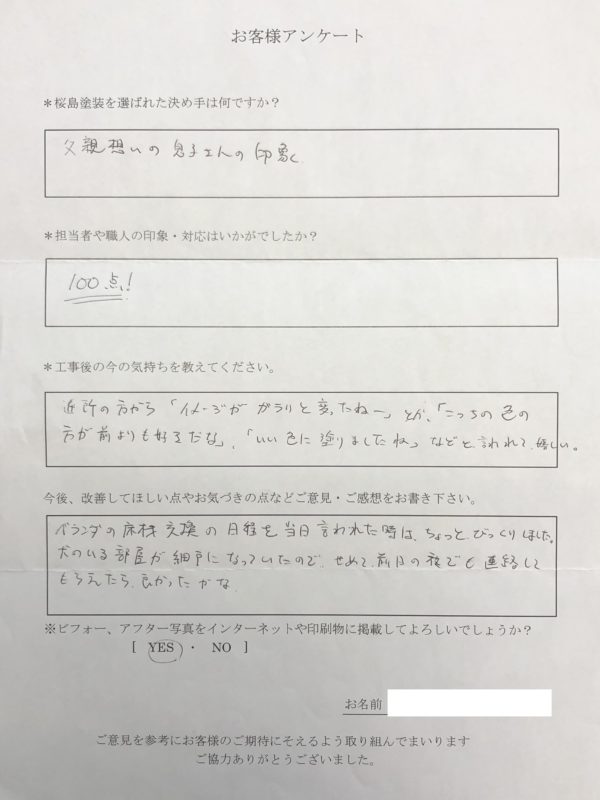 お客様アンケート
＊桜島塗装を選ばれた決め手は何ですか？
父親想いの息子さんの印象
＊担当者や職人の印象・対応はいかがでしたか？
100点!
＊工事後の今の気持ちを教えてください。
近所の方から「イメージがガラリと変ったねー」とか、「こっちの色の
方が前よりも好きだな」、「いい色に塗りましたね」などと言われて、嬉しい。
今後、改善してほしい点やお気づきの点などご意見・ご感想をお書き下さい。
ベランダの床材交換の日程を当日言われた時は、ちょっとびっくりしました。
犬のいる部屋が網戸になっていたので、せめて前日の夜でも連絡して
もらえたら、良かったかな
※ビフォー、アフター写真をインターネットや印刷物に掲載してよろしいでしょうか？
[ YES ・ NO ]
お名前
ご意見を参考にお客様のご期待にそえるよう取り組んでまいります
ご協力ありがとうございました。